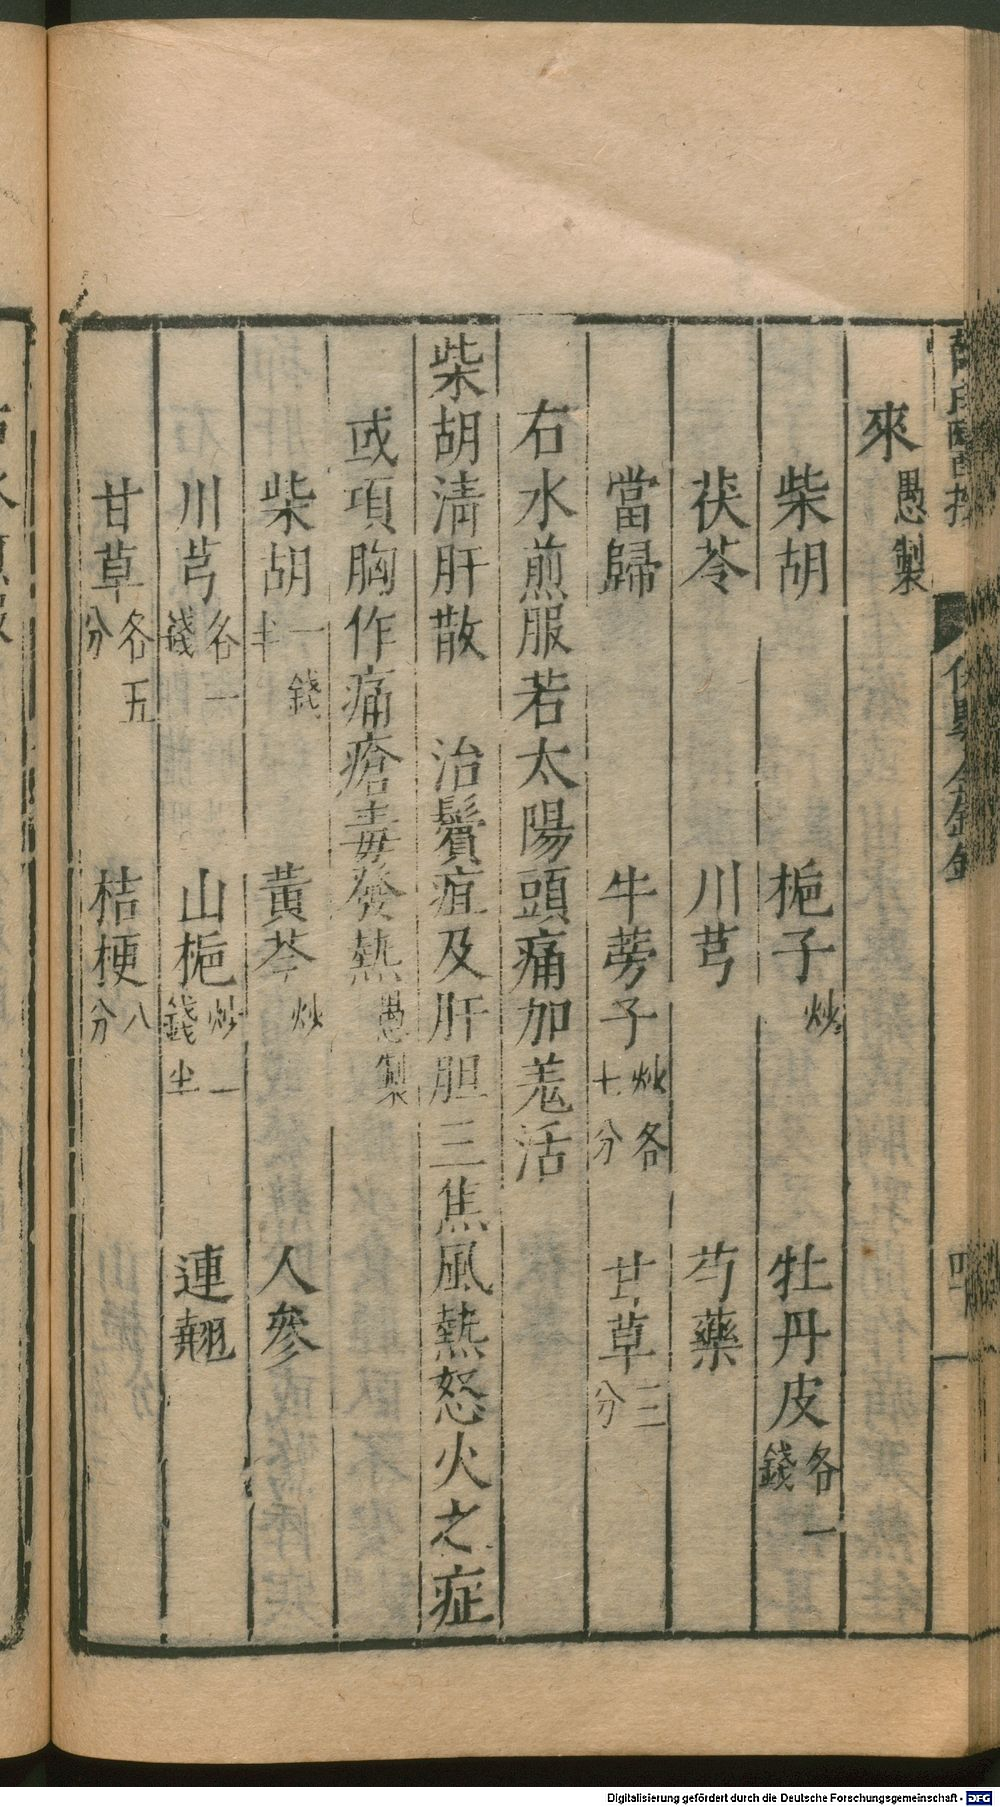 來愚製
柴胡 梔子炒 牡丹皮各一錢
茯苓 川芎 芍藥
當歸 牛蒡子炒各七分 甘草三分
右水煎服若太陽頭痛加羗活
柴胡清肝散 治鬢疽及肝胆三焦風熱怒火之症
或項胸作痛瘡毒發熱愚製
柴胡一錢半 黄芩炒 人參
川芎各一錢 山梔炒一錢半 連翹
甘草各五分 桔梗八分
Digitalisierung gefördert durch die Deutsche Forschungsgemeinschaft - DFG